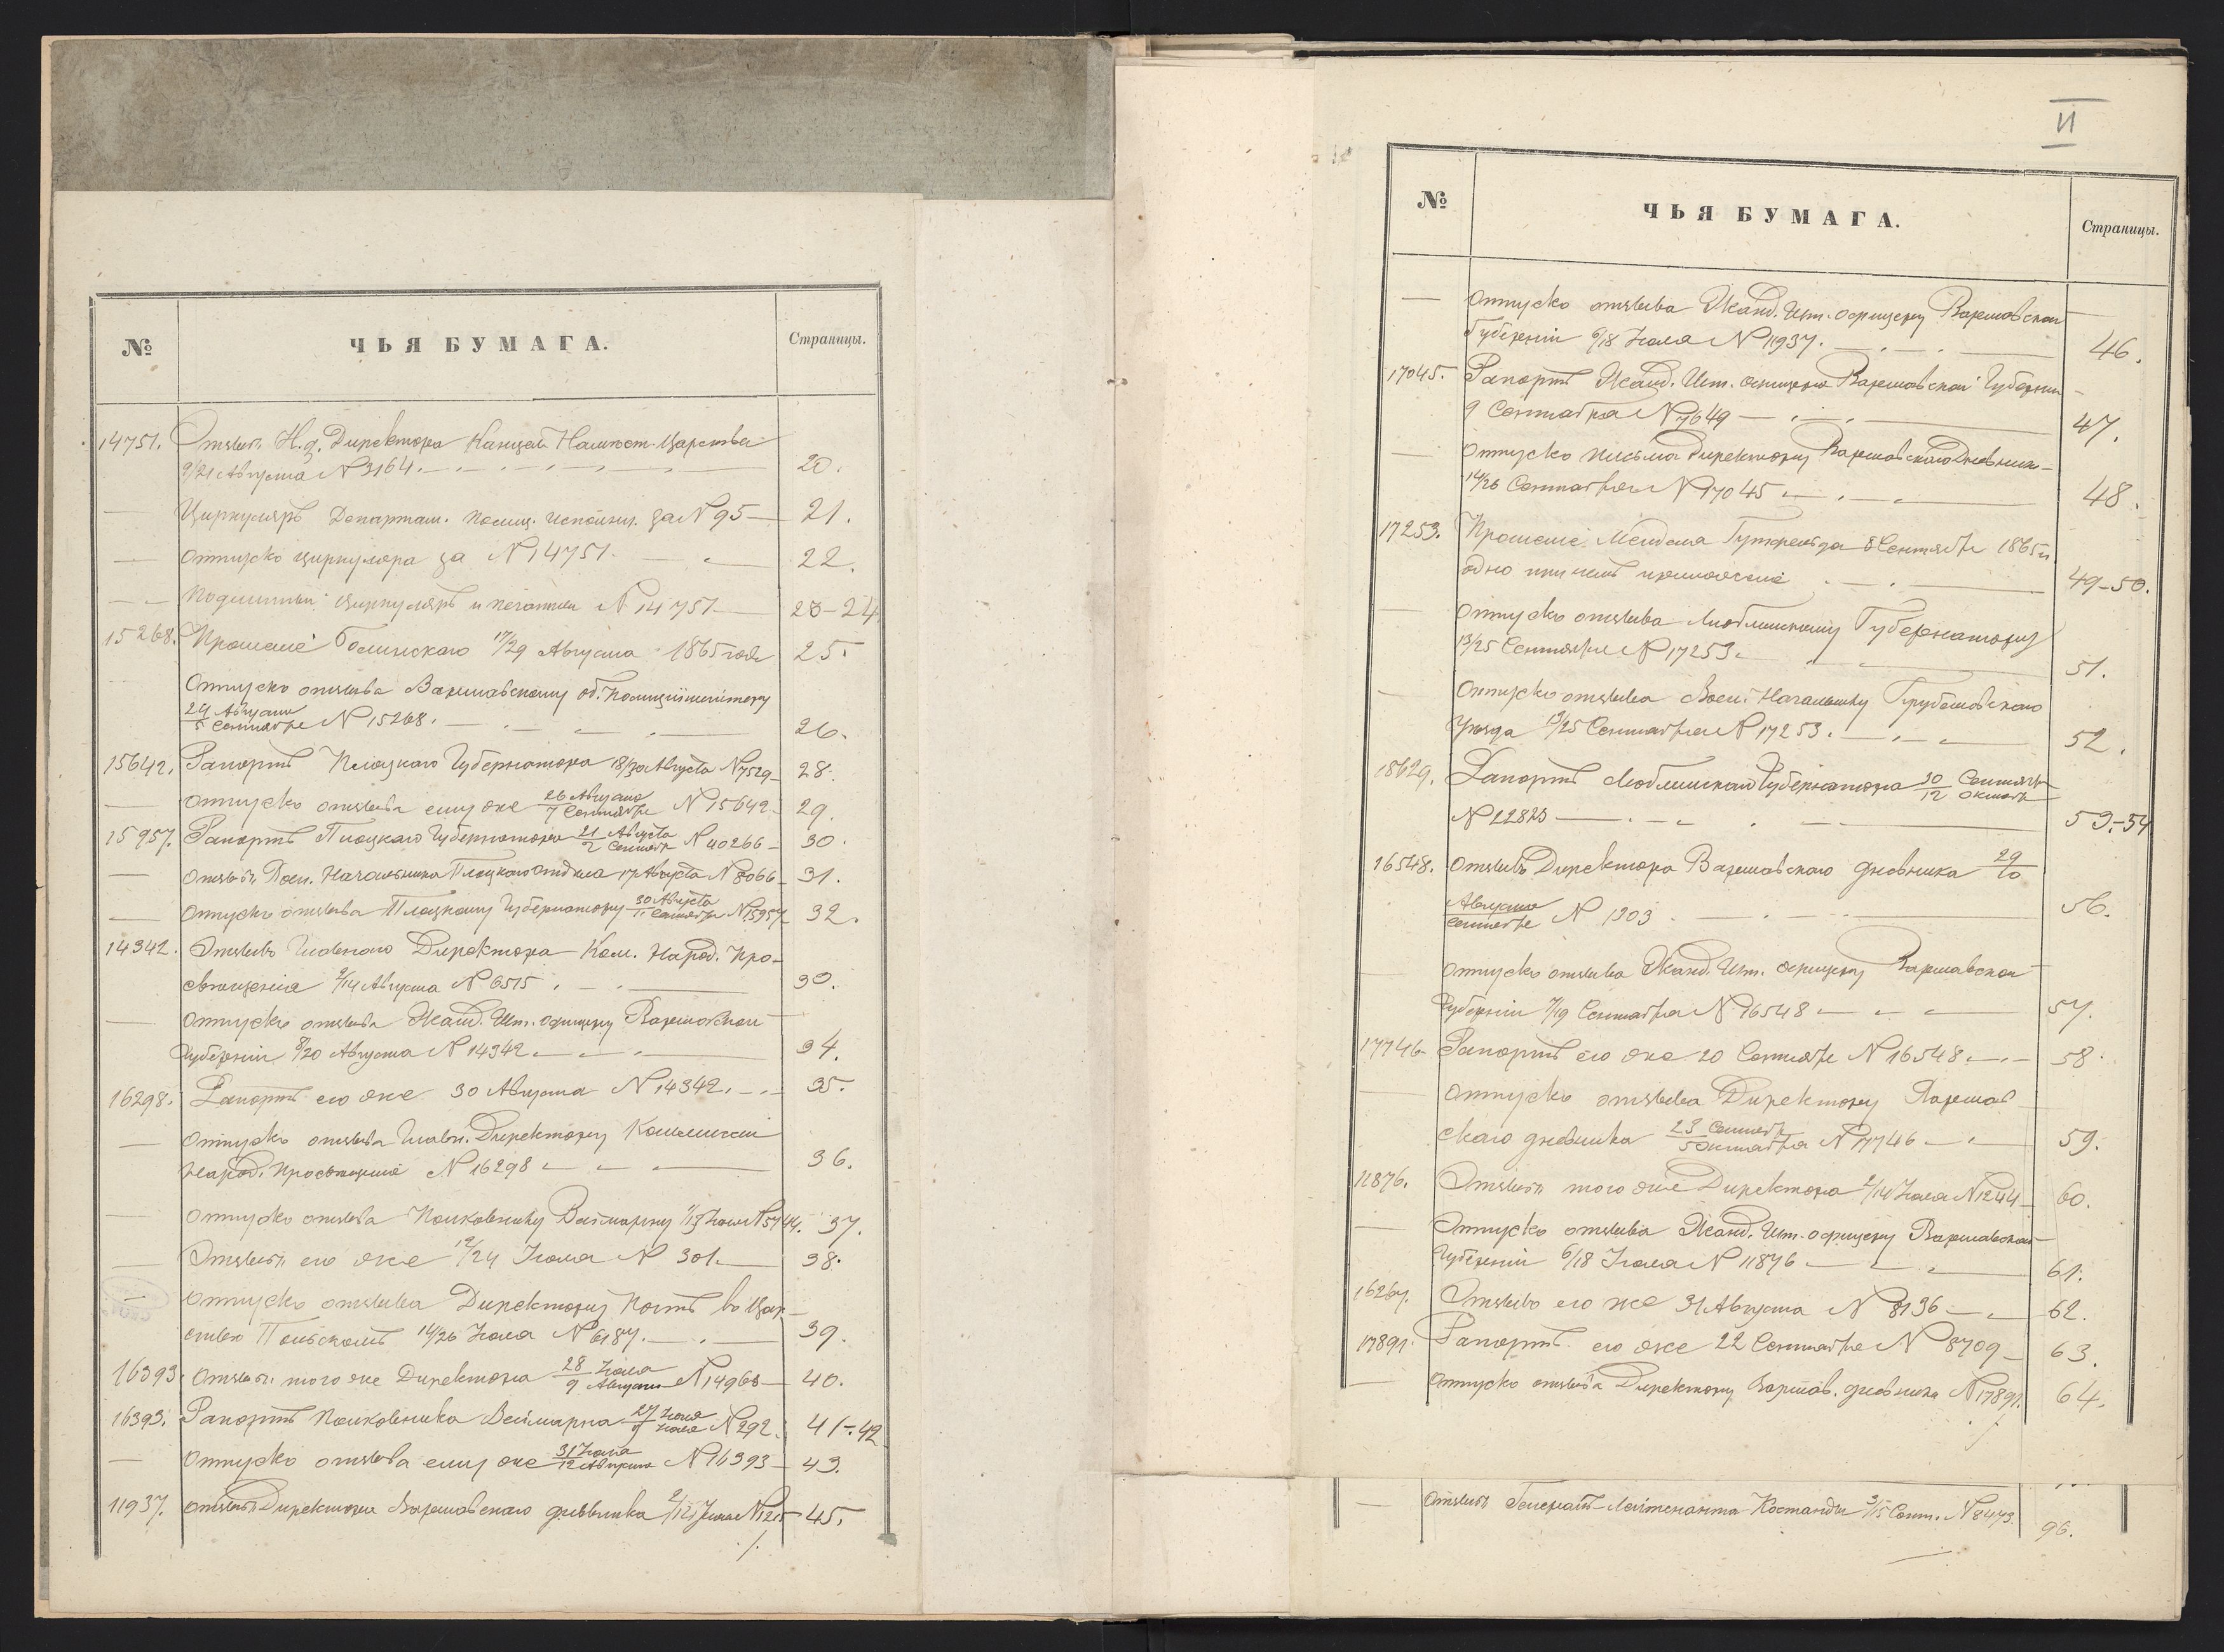 № ЧЬЯ БУМАГА. Страницы.
14751. Отзывъ И.д. Директора Канцел. Намѣст. Царства
9/21 Августа № 3164. 20.
— Циркуляръ Департам. Полиц. Исполнит. за № 95 — 21.
— Отпускъ циркуляра за № 14751. 22.
— Подлинный циркуляръ и печатный № 14751 — 23-24
15268. Прошеніе 17/29 Августа 1865 года 25.
Отпускъ отзыва Варшавскому об. Полиціймейстеру
24 Августа / 5 Сентября № 15268. 26.
15642. Рапортъ Плоцкаго Губернатора 18/30 Августа № 7529 — 28.
— Отпускъ отзыва ему же 26 Августа / 7 Сентября № 15642 — 29.
15957. Рапортъ Плоцкаго Губернатора 21 Августа / 2 Сентяб № 40266 — 30.
— Отзывъ Воен. Начальника Плоцкаго Отдѣла 17 Августа № 8066 — 31.
— Отпускъ отзыва Плоцкому Губернатору 30 Августа / 11 Сентября № 15957 32.
14342. Отзывъ Главнаго Директора Ком. Народ. Про-
свѣщенія 2/14 Августа № 6515. 33.
— Отпускъ отзыва Жанд. Шт. офицеру Варшавской
Губерніи 8/20 Августа № 14342 — 34.
16298. Рапортъ его же 30 Августа № 14342. — 35.
— Отпускъ отзыва Главн. Директору Коммиссіи
Народ. Просвѣщенія № 16298 — 36.
— Отпускъ отзыва Полковнику Веймарну 1/13 № 5744. 37.
— Отзывъ его же 12/24 Іюля № 301. 38.
— Отпускъ отзыва Директору Почтъ въ Цар-
ствѣ Польскомъ 14/26 Іюля № 6187. — 39.
16393. Отзывъ того же Директора 28 Іюля / 9 Августа № 14968 — 40.
16393. Рапортъ Полковника Веймарна 27 / 9 Іюля № 292. 41-42
— Отпускъ отзыва ему же 31 Іюля / 12 Августа № 16393 — 43.
11937. Отзывъ Директора Варшавскаго дневника Іюля 45.
./.
II
№ ЧЬЯ БУМАГА. Страницы.
— Отпускъ отзыва Жанд. Шт. офицеру Варшавской
Губерніи 6/18 Іюля № 11937. 46.
17045. Рапортъ Жанд. Шт. офицера Варшавской Губерніи
9 Сентября № 7649 — 47.
— Отпускъ письма Директору Варшавскаго Дневник-
14/26 Сентября № 17045 — 48.
17253. Прошеніе Менделя Гутфрейнда 8 Сентября 1865 г.
одно при немъ приложеніе 49-50.
— Отпускъ отзыва Люблинскому Губернатору
13/25 Сентября № 17253 — 51.
— Отпускъ отзыва Воен. Начальнику Грубешовскаго
Уѣзда 13/25 Сентября № 17253. — 52.
18629. Рапортъ Люблинскаго Губернатора 30 Сентября / 12 Октября
№ 22823 — 53-54
16548. Отзывъ Директора Варшавскаго дневника 29/10
Августа / Сентября № 1303. 56.
— Отпускъ отзыва Жанд. Шт. офицеру Варшавской
Губерніи 7/19 Сентября № 16548 — 57.
17746. Рапортъ его же 20 Сентября № 16548 — 58.
— Отпускъ отзыва Директору Варшав
скаго дневника 23 Сентяб / 5 Октября № 17746 — 59.
11876. Отзывъ того же Директора 2/14 Іюля № 1244 — 60.
— Отпускъ отзыва Жанд. Шт. офицеру Варшавской
Губерніи 6/18 Іюля № 11876 — 61.
16267. Отзывъ его же 31 Августа № 8136 — 62.
17891. Рапортъ его же 22 Сентября № 8709 — 63.
— Отпускъ отзыва Директору Варшав. дневника № 17891. 64.
./.
— Отзывъ Генералъ-Лейтенанта Костанды 3/15 Сент. № 8473. 96.